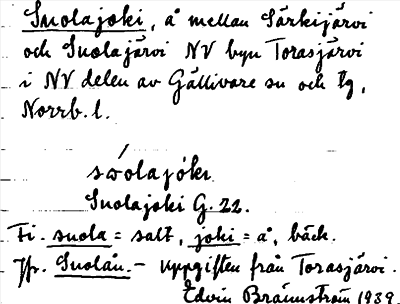 Suolajoki, å mellan Särkijärvi
och Suolajärvi NV byn Torasjärvi
i NV delen av Gällivare sn och tg,
Norrb. l.
Suolajoki G. 22.
Fi. suola = salt, joki = å, bäck.
Jfr. Suolån. – Uppgiften från Torasjärvi.
Edvin Brännström 1939.